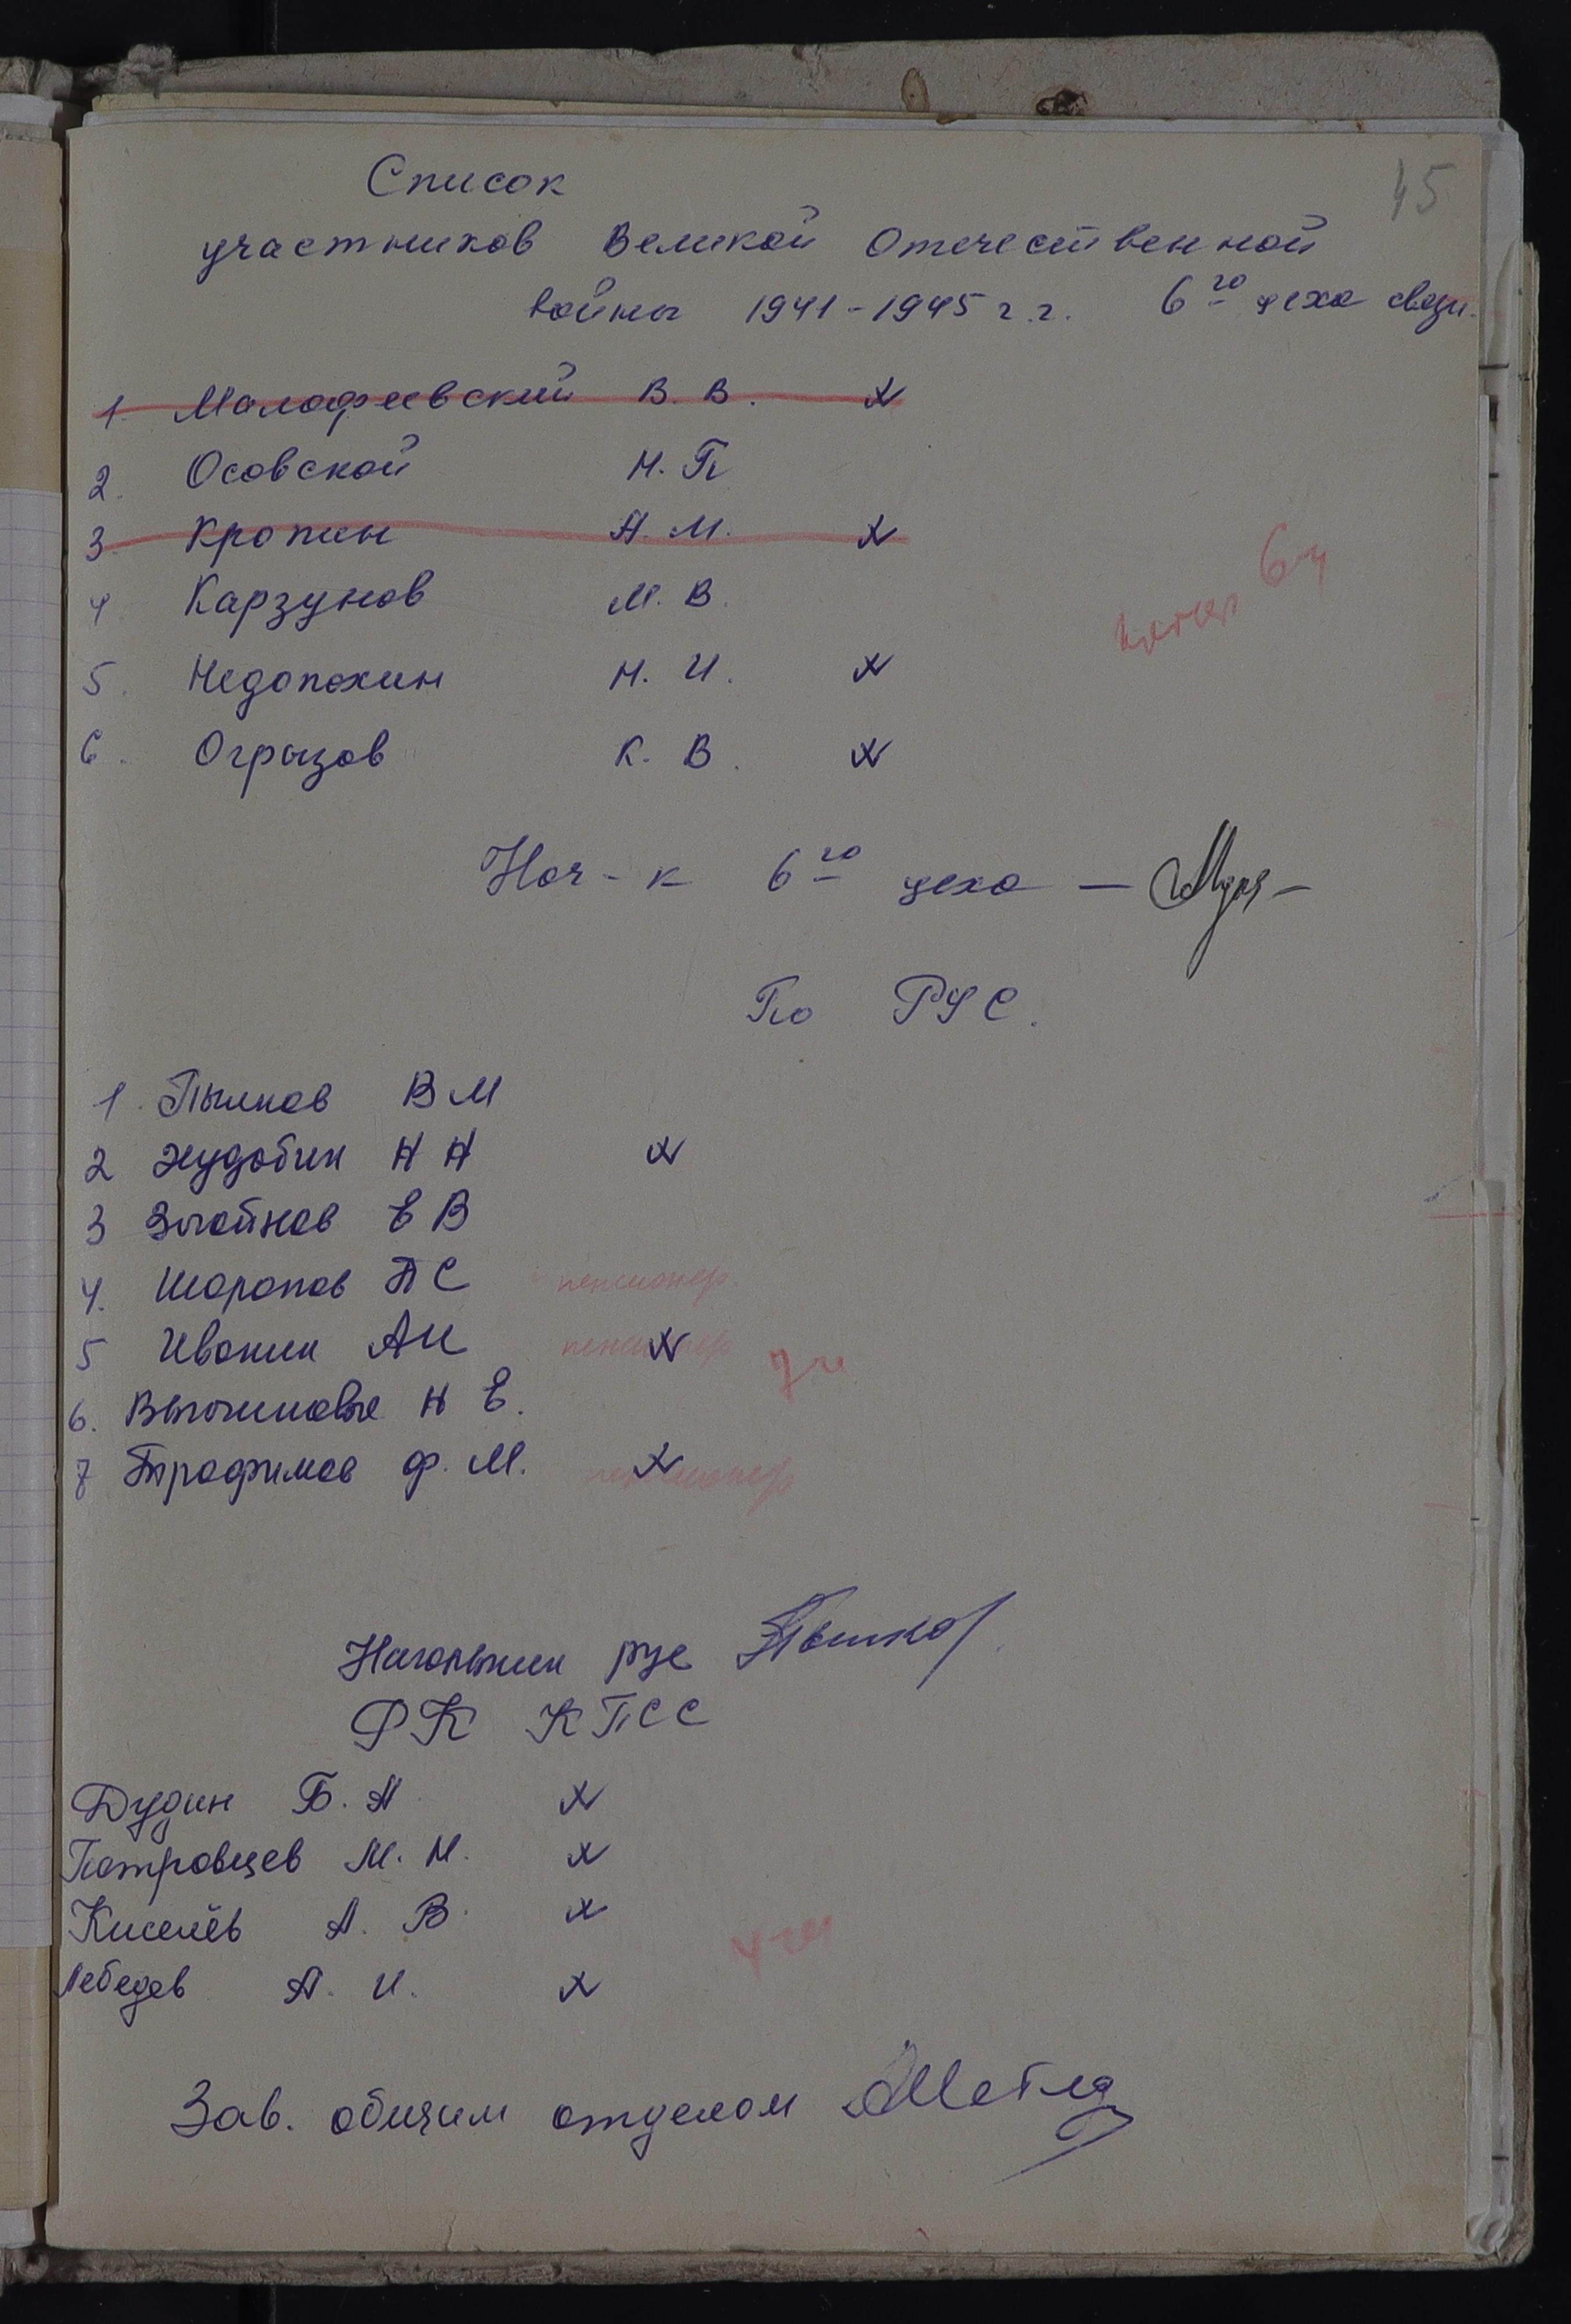 45
Список
участников Великой Отечественной
войны 1941-1945 г.г. 6го цеха связи.
1. Малафеевский В. В. х
2. Осовской Н. П
3. Кропин А. М. х
4 Карзунов М. В.
6 ч
5. Недопекин Н. И. х
6. Огрызов К. В. х
Нач-к 6го цеха —
По РУС.
1. Пылков ВМ
2 Худобин Н Н х
3 Е В
4. Шарапов П С пенсионер.
5 Иванин АИ пенсионер х
7 ч
6. Н Е.
7 Трофимов Ф. М. х пенсионер
Начальник рус
РК КПСС
Дудин Б. А. х
Петровцев М. Н. х
Киселёв А. В. х
4 ч
Лебедев А. И. х
Зав. общим отделом